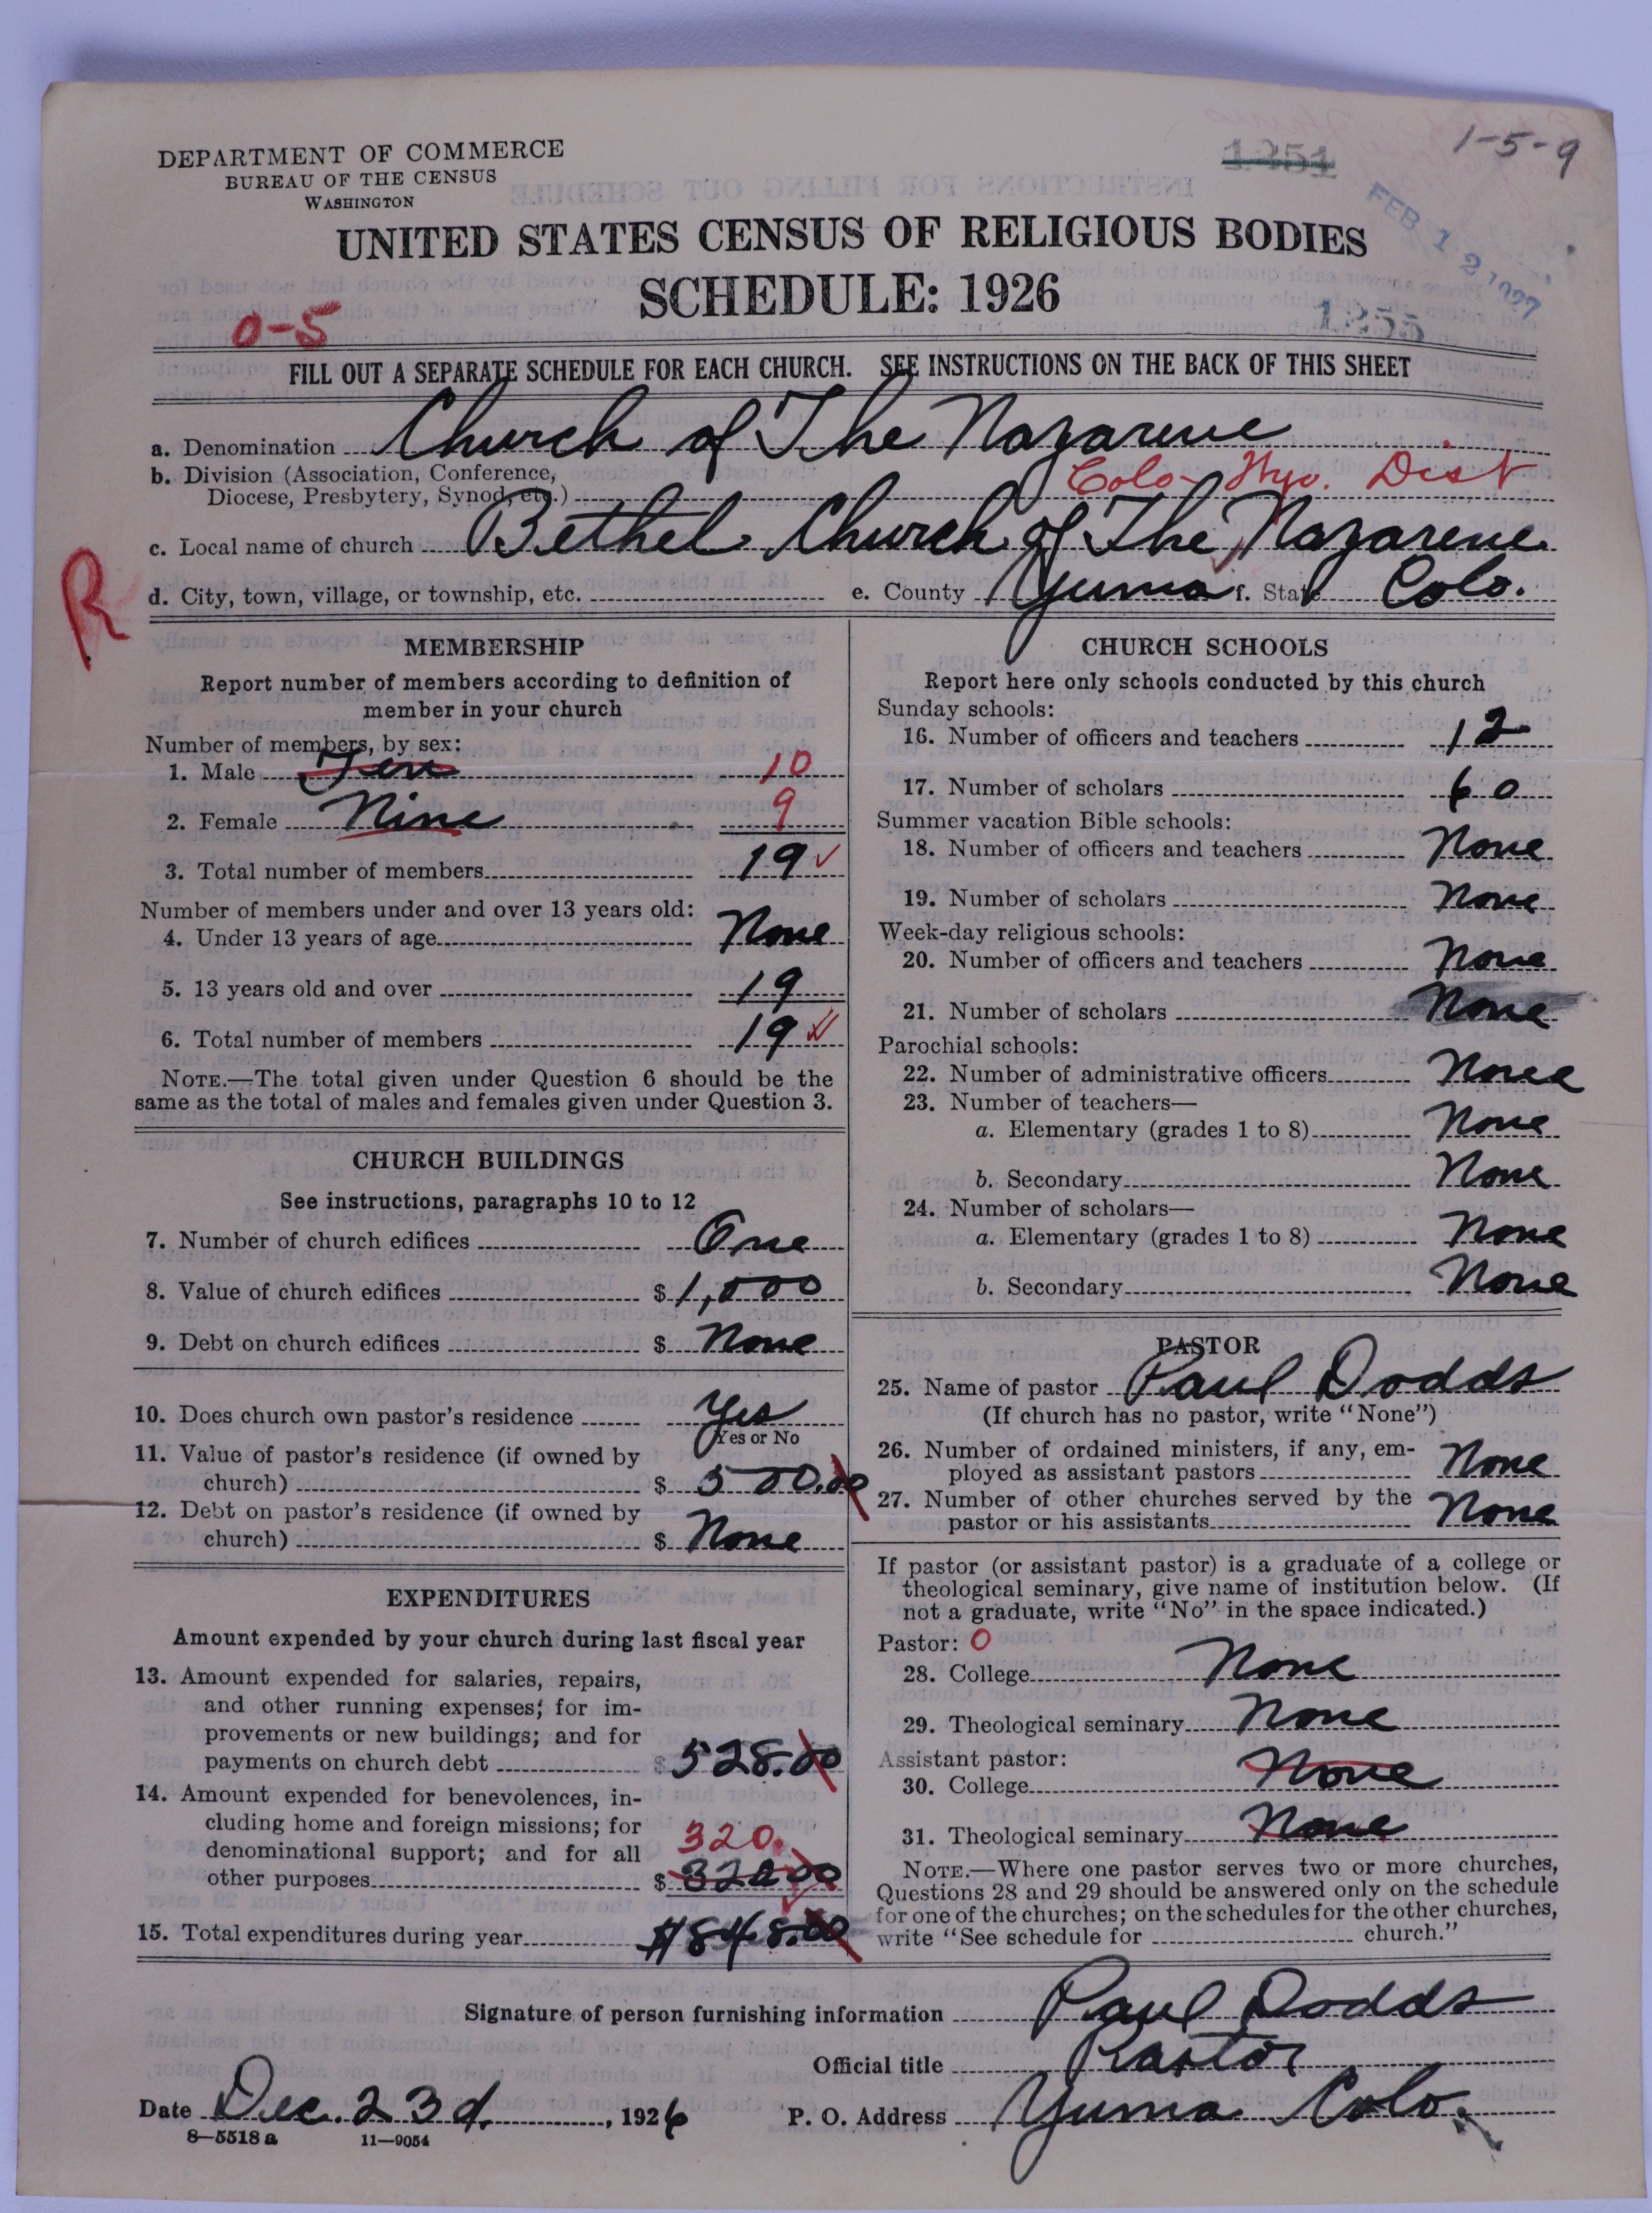 DEPARTMENT OF COMMERCE
BUREAU OF THE CENSUS
WASHINGTON
1251
1-5-9
FEB 12 1927
UNITED STATES CENSUS OF RELIGIOUS BODIES
SCHEDULE: 1926
1255
0-5
FILL OUT A SEPARATE SCHEDULE FOR EACH CHURCH. SEE INSTRUCTIONS ON THE BACK OF THIS SHEET
a. Denomination Church of The Nazarene
b. Division (Association, Conference,
Diocese, Presbytery, Synod, etc.) Colo-Wyo. Dist
c. Local name of church Bethel Church of The Nazarene
R
d. City, town, village, or township, etc. e. County Yuma f. State Colo.
MEMBERSHIP
Report number of members according to definition of
member in your church
Number of members, by sex:
1. Male Ten 10
2. Female Nine 9
3. Total number of members 19 ✓
Number of members under and over 13 years old:
4. Under 13 years of age None
5. 13 years old and over 19
6. Total number of members 19
NOTE.—The total given under Question 6 should be the
same as the total of males and females given under Question 3.
CHURCH BUILDINGS
See instructions, paragraphs 10 to 12
7. Number of church edifices One
8. Value of church edifices $ 1,000
9. Debt on church edifices $ None
10. Does church own pastor's residence Yes
Yes or No
11. Value of pastor's residence (if owned by
church) $ 500.00
12. Debt on pastor's residence (if owned by
church) $ None
EXPENDITURES
Amount expended by your church during last fiscal year
13. Amount expended for salaries, repairs,
and other running expenses; for im-
provements or new buildings; and for
payments on church debt $ 528.00
14. Amount expended for benevolences, in-
cluding home and foreign missions; for
denominational support; and for all 320.
other purposes $ 320.00
15. Total expenditures during year $848.00
CHURCH SCHOOLS
Report here only schools conducted by this church
Sunday schools:
16. Number of officers and teachers 12
17. Number of scholars 60
Summer vacation Bible schools:
18. Number of officers and teachers None
19. Number of scholars None
Week-day religious schools:
20. Number of officers and teachers None
21. Number of scholars None
Parochial schools:
22. Number of administrative officers None
23. Number of teachers—
a. Elementary (grades 1 to 8) None
b. Secondary None
24. Number of scholars—
a. Elementary (grades 1 to 8) None
b. Secondary None
PASTOR
25. Name of pastor Paul Dodds
(If church has no pastor, write "None")
26. Number of ordained ministers, if any, em-
ployed as assistant pastors None
27. Number of other churches served by the
pastor or his assistants None
If pastor (or assistant pastor) is a graduate of a college or
theological seminary, give name of institution below. (If
not a graduate, write "No" in the space indicated.)
Pastor: 0
28. College None
29. Theological seminary None
Assistant pastor:
30. College None
31. Theological seminary None
NOTE.—Where one pastor serves two or more churches,
Questions 28 and 29 should be answered only on the schedule
for one of the churches; on the schedules for the other churches,
write "See schedule for church."
Signature of person furnishing information Paul Dodds
Official title Pastor
Date Dec. 23d., 1926 P. O. Address Yuma Colo.
8—5518 a 11—9054